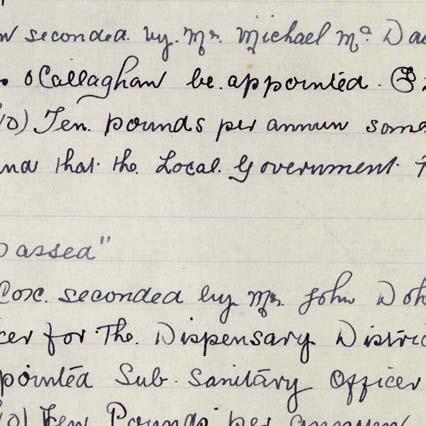 seconded by Mr. Michael Mc Da
O'Callaghan be appointed.
10) Ten pounds per annum some
and that the Local Government
Passed"
Cox. seconded by Mr. John Doh
cer for The Dispensary Distric
pointed Sub. Sanitary Officer
10) Ten Pounds per annum